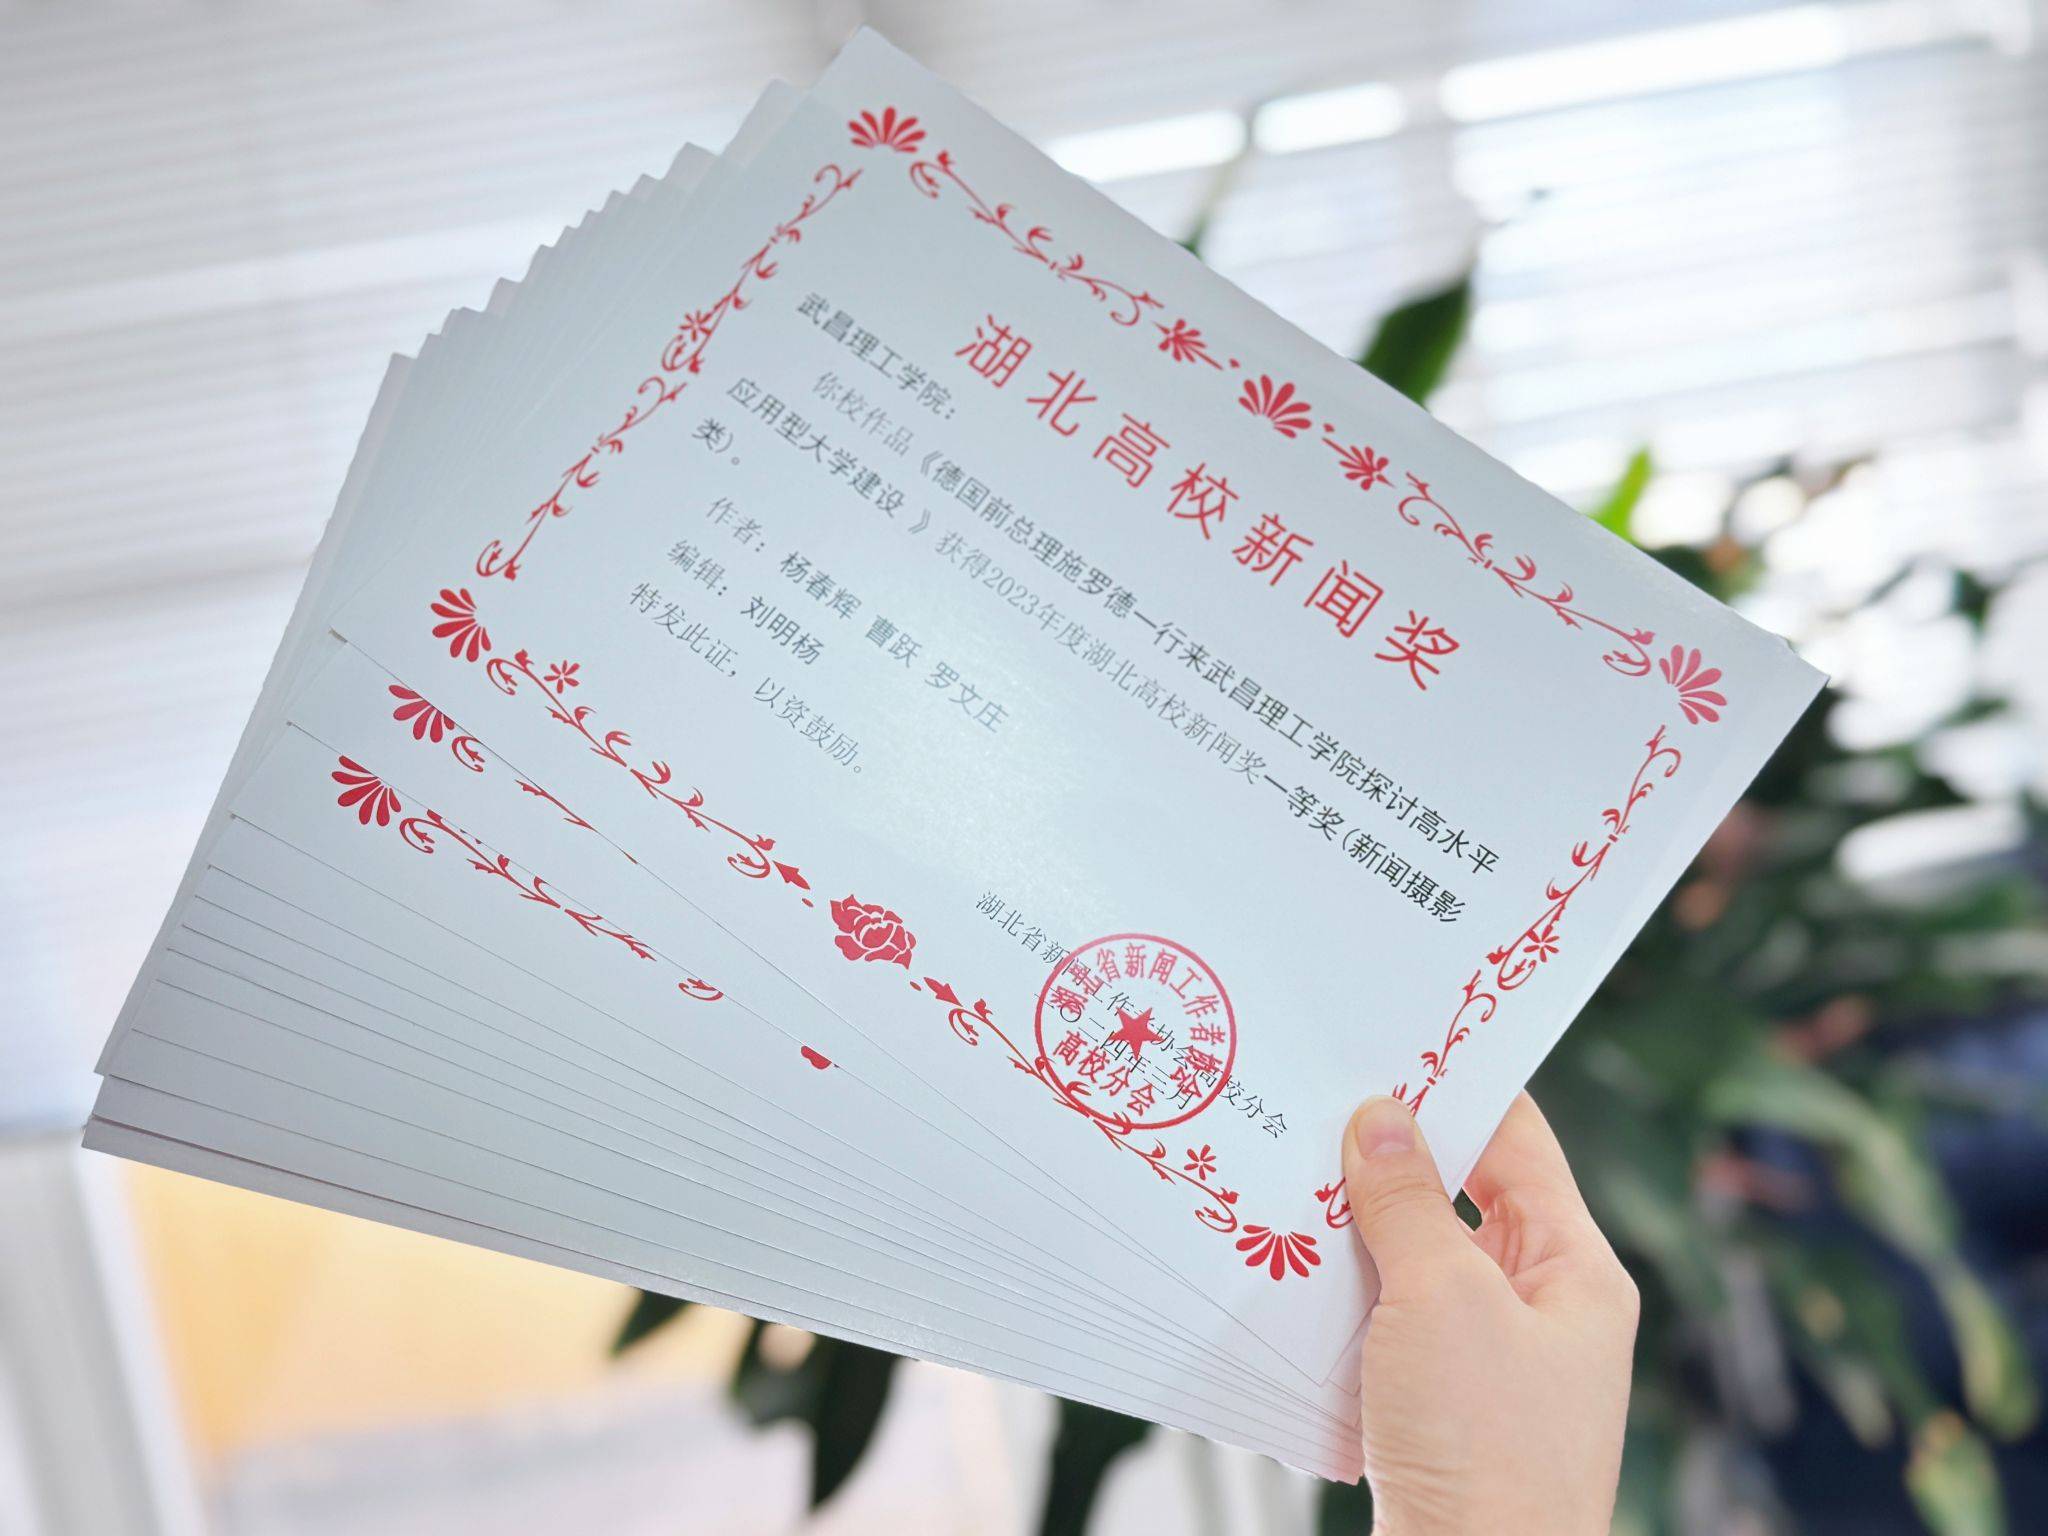 湖北高校新闻奖
武昌理工学院：
你校作品《德国前总理施罗德一行来武昌理工学院探讨高水平
应用型大学建设 》获得2023年度湖北高校新闻奖一等奖（新闻摄影
类）。
作者：杨春辉 曹跃 罗文庄
编辑：刘明杨
特发此证，以资鼓励。
湖北省新闻工作者协会高校分会
二〇二四年三月
省新闻工作者
高校分会